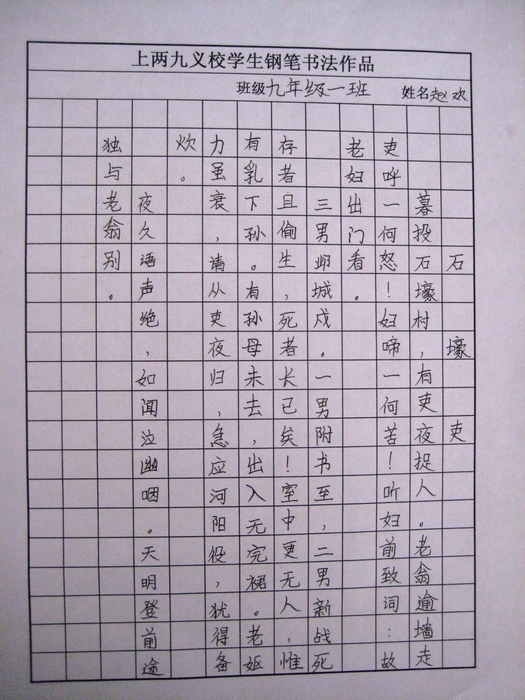 上两九义校学生钢笔书法作品
班级九年级一班 姓名赵欢
石壕吏
暮投石壕村，有吏夜捉人。老翁逾墙走
吏呼一何怒！妇啼一何苦！听妇前致词：故
老妇出门看。
三男邺城戍。一男附书至，二男新战死
存者且偷生，死者长已矣！室中更无人，惟
有乳下孙。有孙母未去，出入无完裙。老妪
力虽衰，请从吏夜归，急应河阳役，犹得备
炊。
夜久语声绝，如闻泣幽咽。天明登前途
独与老翁别。